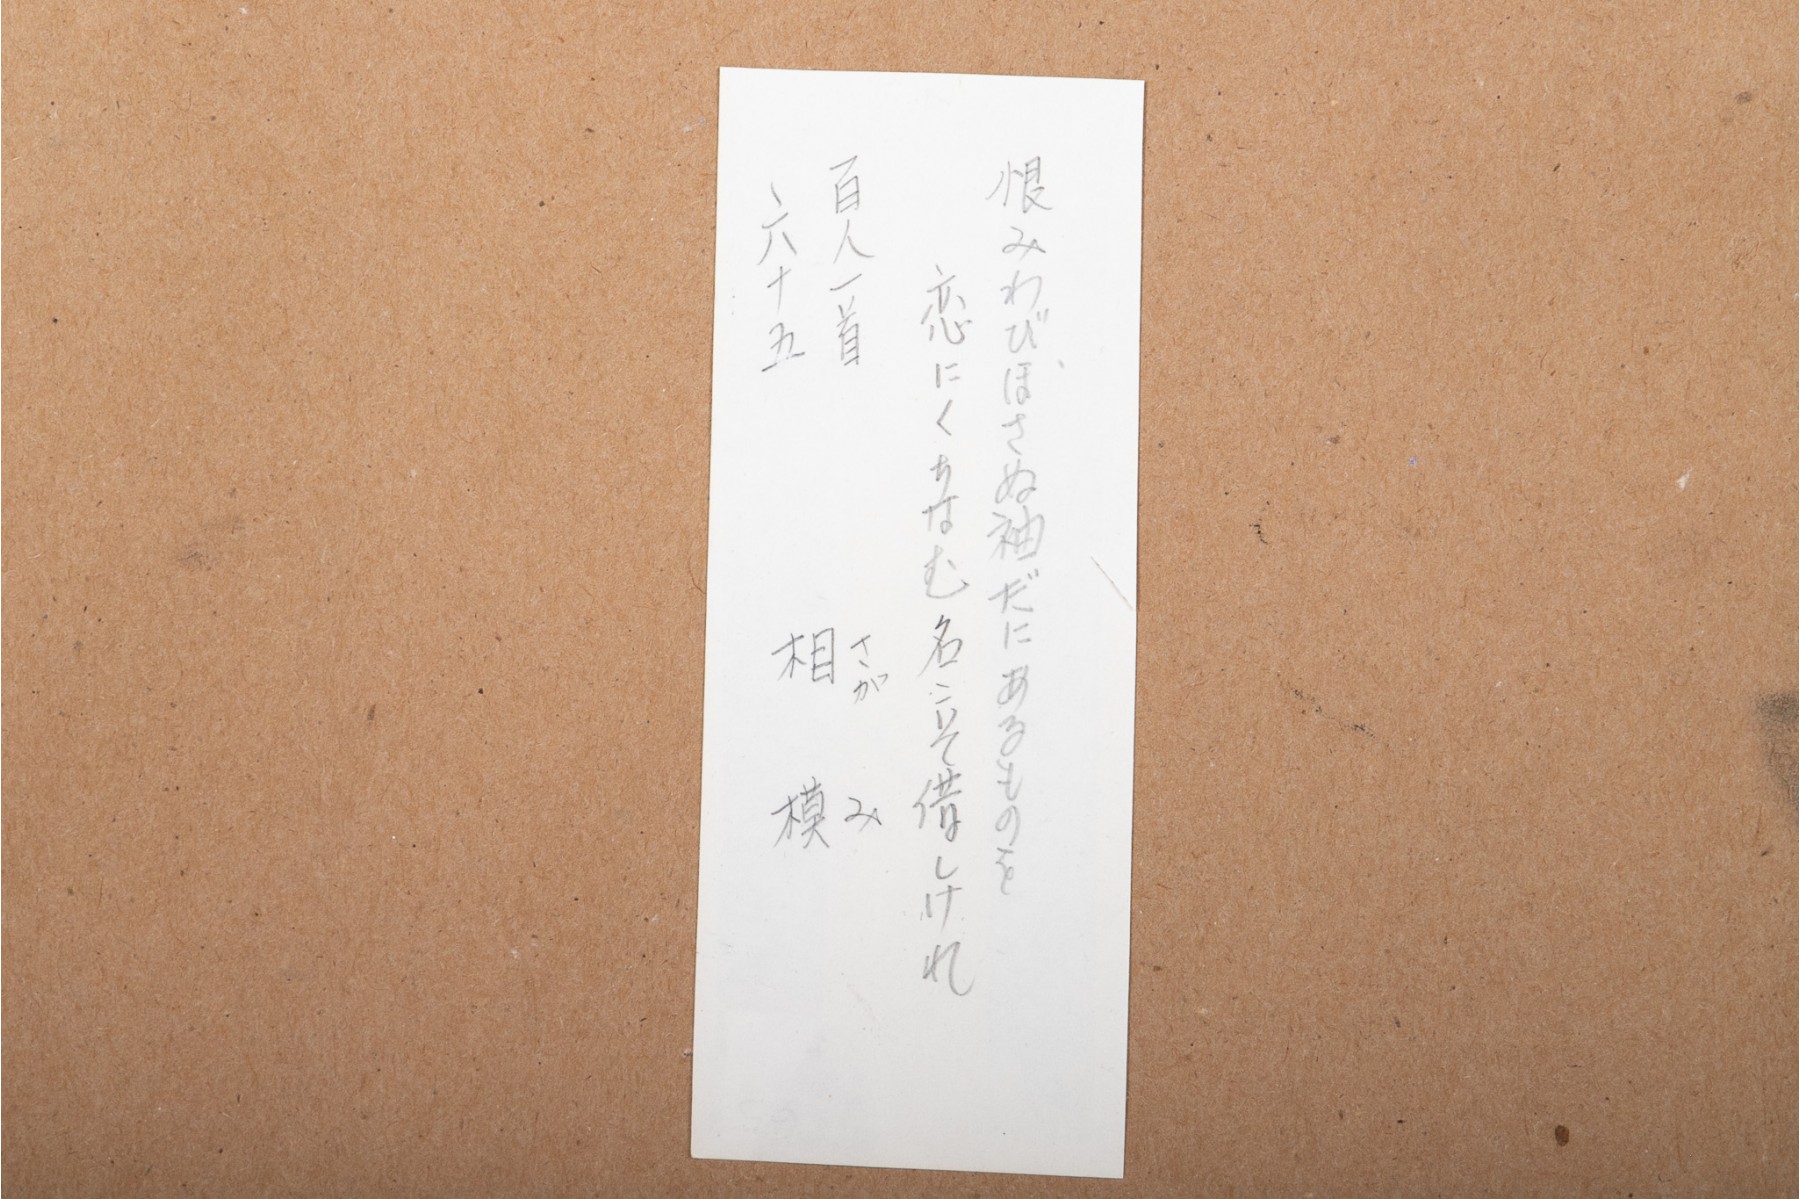 恨みわびほさぬ袖だにあるものを
恋にくちなむ名こいそ借しけれ
百人一首
六十五
さが み
相模